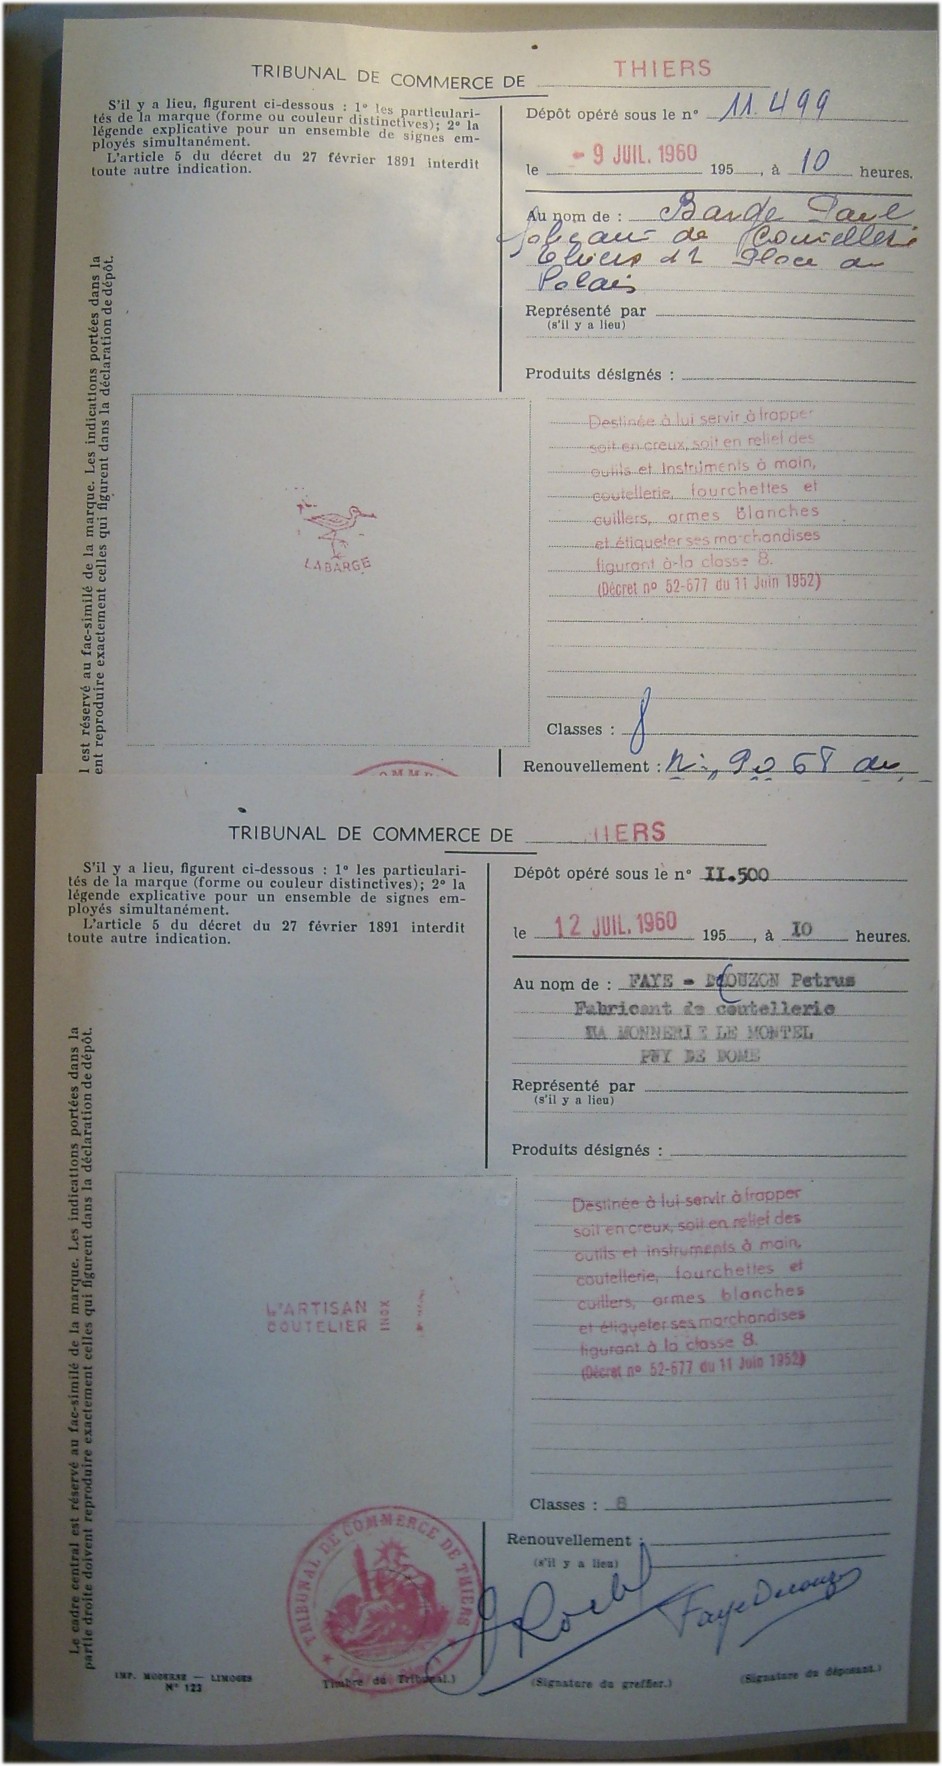 TRIBUNAL DE COMMERCE DE THIERS
S'il y a lieu, figurent ci-dessous : 1º les particulari-
tés de la marque (forme ou couleur distinctives); 2º la
légende explicative pour un ensemble de signes em-
ployés simultanément.
L'article 5 du décret du 27 février 1891 interdit
toute autre indication.
Dépôt opéré sous le nº 11.499
le - 9 JUIL. 1960 195 , à 10 heures.
Au nom de : Barge Paul
de
Thiers 12 Place du
Palais
Représenté par
(s'il y a lieu)
Produits désignés :
l est réservé au fac-similé de la marque. Les indications portées dans la
ent reproduire exactement celles qui figurent dans la déclaration de dépôt.
LABARGE
Destinée à lui servir à frapper
soit en creux, soit en relief des
outils et instruments à main,
coutellerie, fourchettes et
cuillers, armes blanches
et étiqueter ses marchandises
figurant à la classe 8.
(Décret nº 52-677 du 11 Juin 1952)
Classes : 8
Renouvellement : Nº 9068 du
TRIBUNAL DE COMMERCE DE HIERS
S'il y a lieu, figurent ci-dessous : 1º les particulari-
tés de la marque (forme ou couleur distinctives); 2º la
légende explicative pour un ensemble de signes em-
ployés simultanément.
L'article 5 du décret du 27 février 1891 interdit
toute autre indication.
Dépôt opéré sous le nº II.500
le 12 JUIL. 1960 195 , à IO heures.
Au nom de : FAYE - DCOUZON Petrus
Fabricant de coutellerie
LA MONNERIE LE MONTEL
PUY DE DOME
Représenté par
(s'il y a lieu)
Produits désignés :
Le cadre central est réservé au fac-similé de la marque. Les indications portées dans la
partie droite doivent reproduire exactement celles qui figurent dans la déclaration de dépôt.
L'ARTISAN
COUTELIER
INOX
Destinée à lui servir à frapper
soit en creux, soit en relief des
outils et instruments à main,
coutellerie, fourchettes et
cuillers, armes blanches
et étiqueter ses marchandises
figurant à la classe 8.
(Décret nº 52-677 du 11 Juin 1952)
Classes : 8
Renouvellement :
(s'il y a lieu)
TRIBUNAL DE COMMERCE DE THIERS
Faye Decouzon
IMP. MODERNE — LIMOGES
Nº 123
Timbre du Tribunal.)
(Signature du greffier.)
(Signature du déposant.)